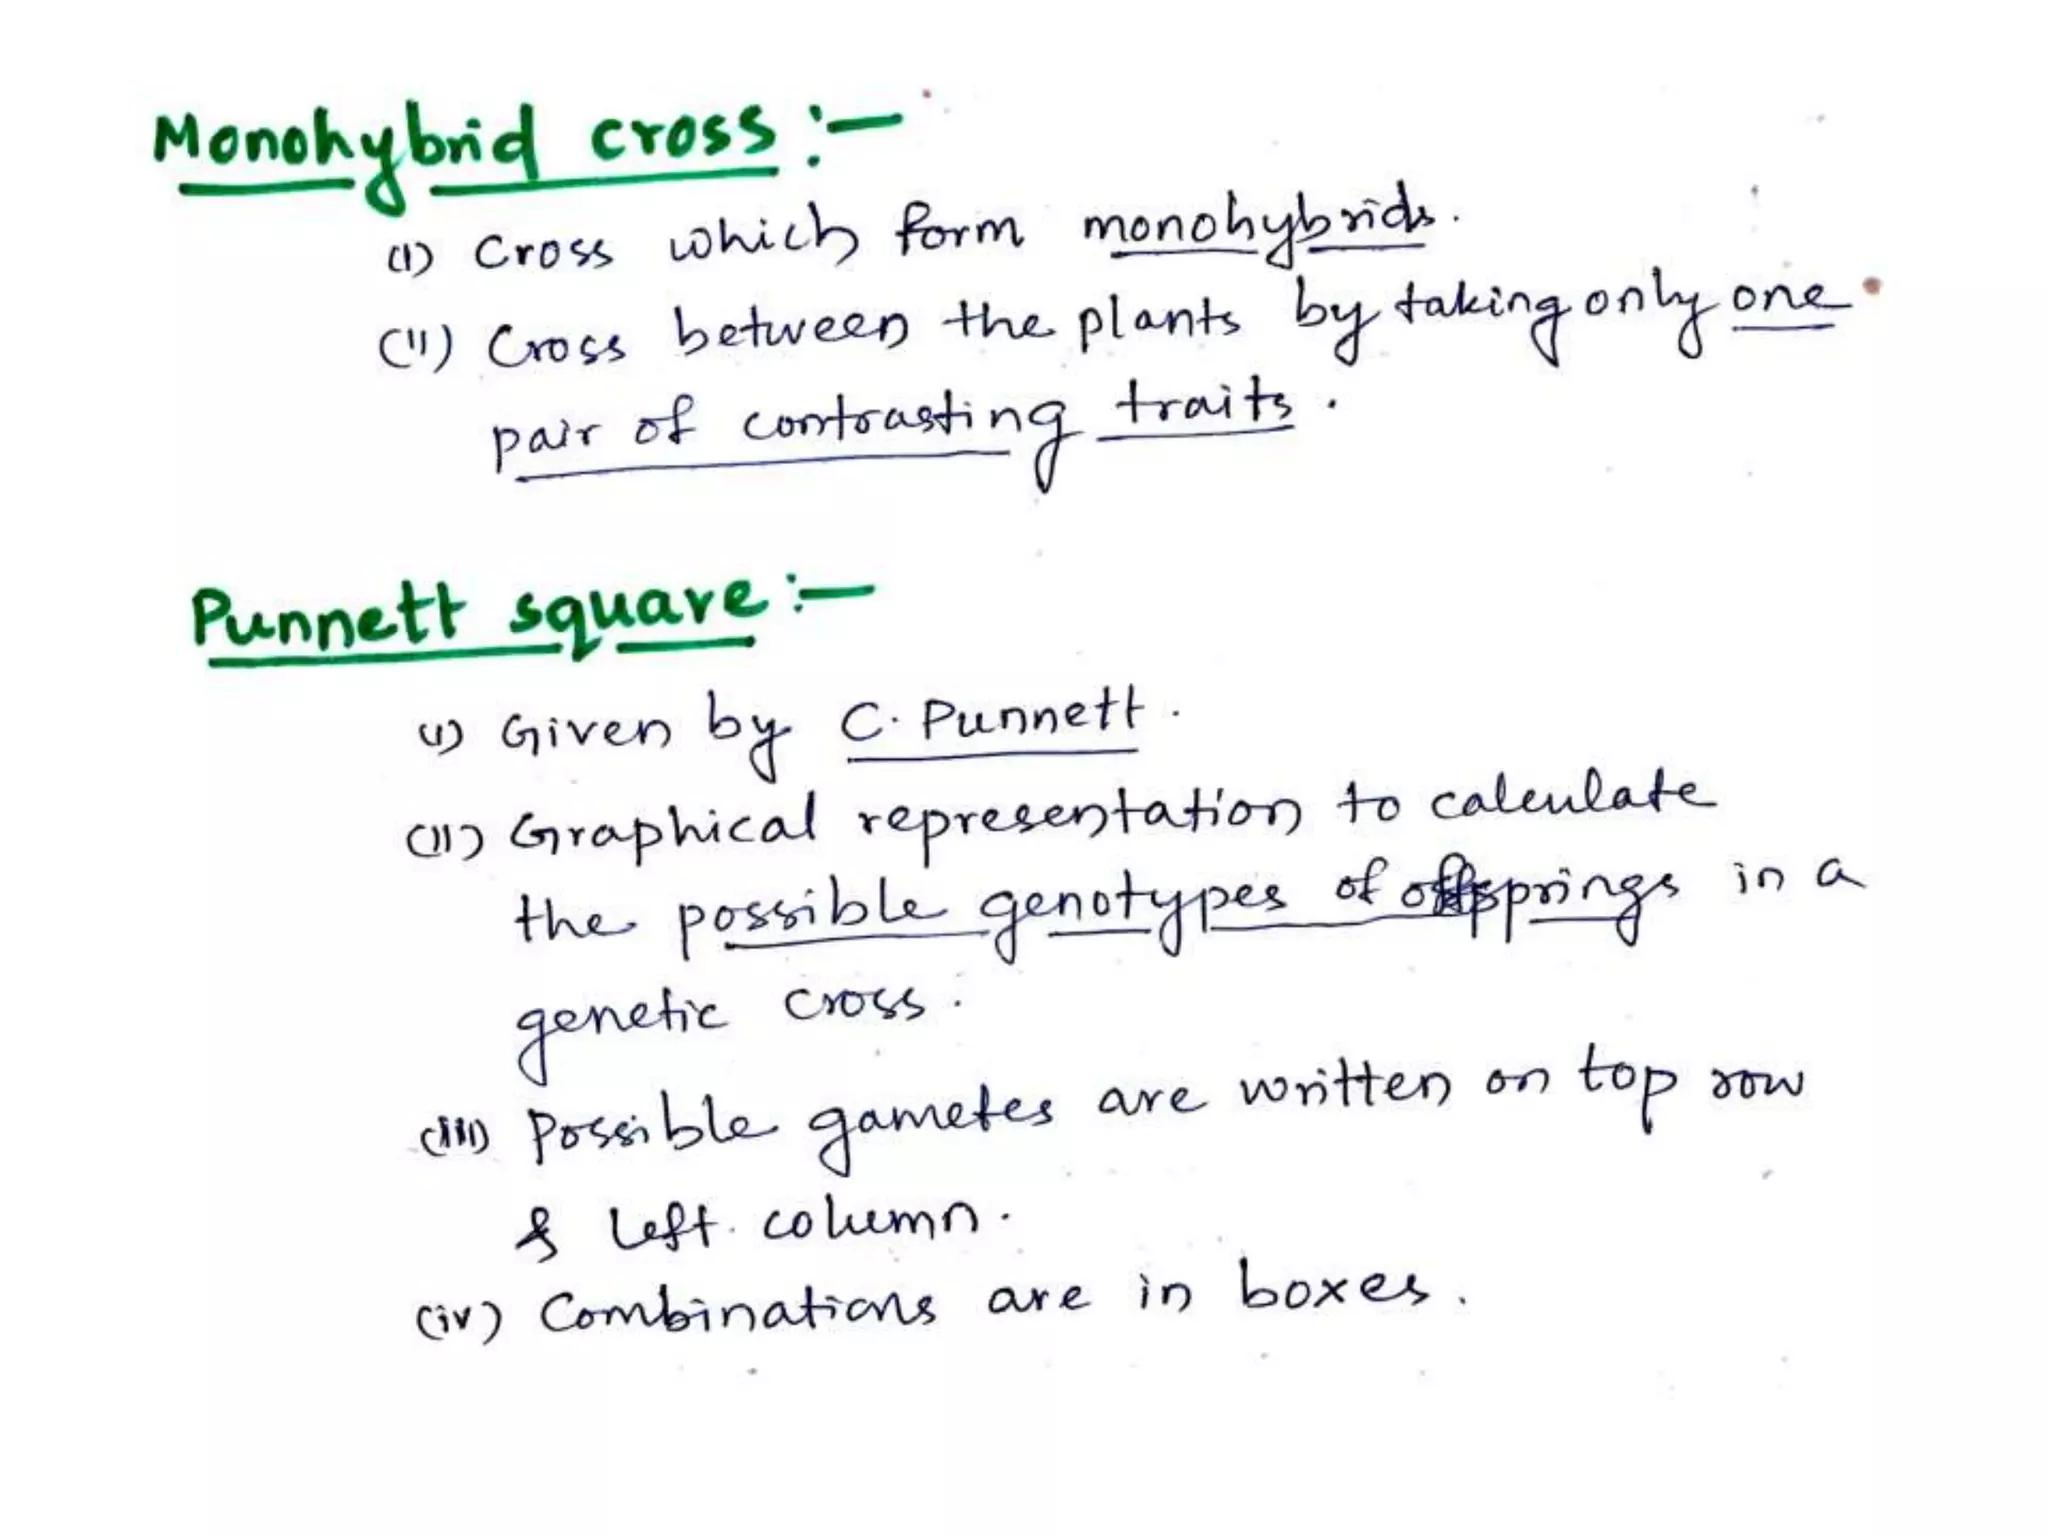 Monohybrid cross :-
(i) Cross which form monohybrids.
(ii) Cross between the plants by taking only one
pair of contrasting traits.
Punnett square :-
(i) Given by C. Punnett.
(ii) Graphical representation to calculate
the possible genotypes of offsprings in a
genetic cross.
(iii) Possible gametes are written on top row
& left column.
(iv) Combinations are in boxes.